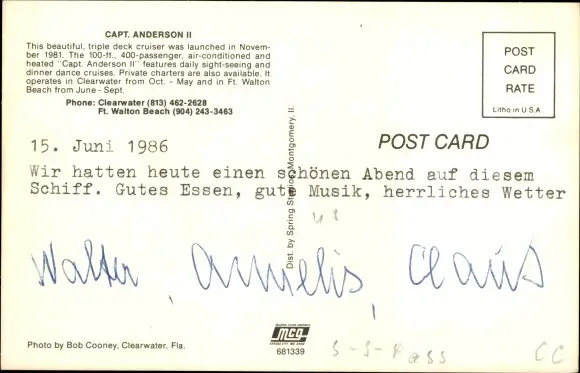 CAPT. ANDERSON II
This beautiful, triple deck cruiser was launched in Novem-
ber 1981. The 100-ft., 400-passenger, air-conditioned and
heated "Capt. Anderson II" features daily sight-seeing and
dinner dance cruises. Private charters are also available. It
operates in Clearwater from Oct. - May and in Ft. Walton
Beach from June - Sept.
Phone: Clearwater (813) 462-2628
Ft. Walton Beach (904) 243-3463
POST
CARD
RATE
Litho in U.S.A.
POST CARD
Dist. by Spring Studio, Montgomery, Il.
15. Juni 1986
Wir hatten heute einen schönen Abend auf diesem
Schiff. Gutes Essen, gute Musik, herrliches Wetter
Walter, Annelis, Claus
Photo by Bob Cooney, Clearwater, Fla.
mcg
681339
S-S-Pass
CC